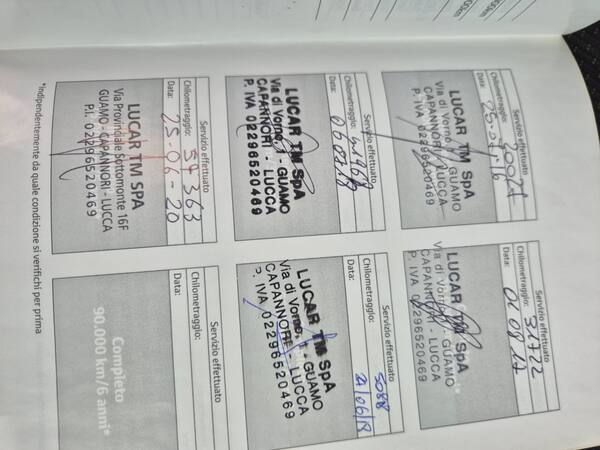 Servizio effettuato
Chilometraggio:
Data:
LUCAR TM SpA
Via di Vorno, GUAMO
CAPANNORI - LUCCA
P. IVA 02296520469
Servizio effettuato
Chilometraggio: 31722
Data: 01 08 17
LUCAR TM SpA
Via di Vorno, GUAMO
CAPANNORI - LUCCA
P. IVA 02296520469
Servizio effettuato
Chilometraggio:
Data:
LUCAR TM SpA
Via di Vorno, GUAMO
CAPANNORI - LUCCA
P. IVA 02296520469
Servizio effettuato
Chilometraggio:
Data: 21/06/18
LUCAR TM SpA
Via di Vorno, GUAMO
CAPANNORI - LUCCA
P. IVA 02296520469
Servizio effettuato
Chilometraggio: 59363
Data: 25-06-20
LUCAR TM SPA
Via Provinciale Sottomonte 16F
GUAMO - CAPANNORI - LUCCA
P.I. 02296520469
Servizio effettuato
Chilometraggio:
Data:
Completo
90.000 km/6 anni*
*Indipendentemente da quale condizione si verifichi per prima